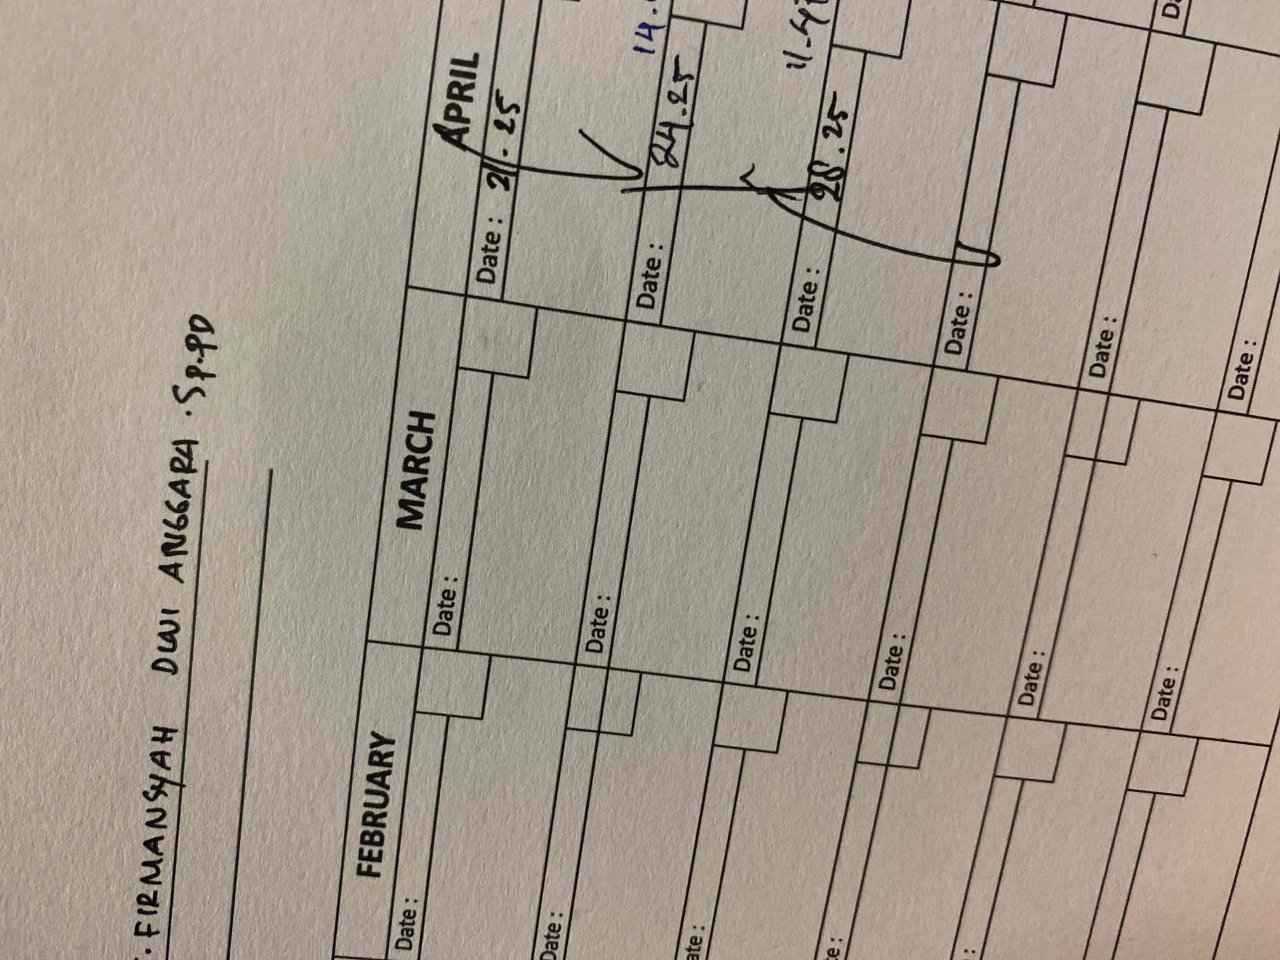 . FIRMANSYAH DWI ANGGARA . Sp.PD
FEBRUARY MARCH APRIL
Date : Date : Date : 21.25
Date : Date : Date : 24.25
14.
ate : Date : Date : 28.25
e : Date : Date :
: Date : Date :
Date : Date :